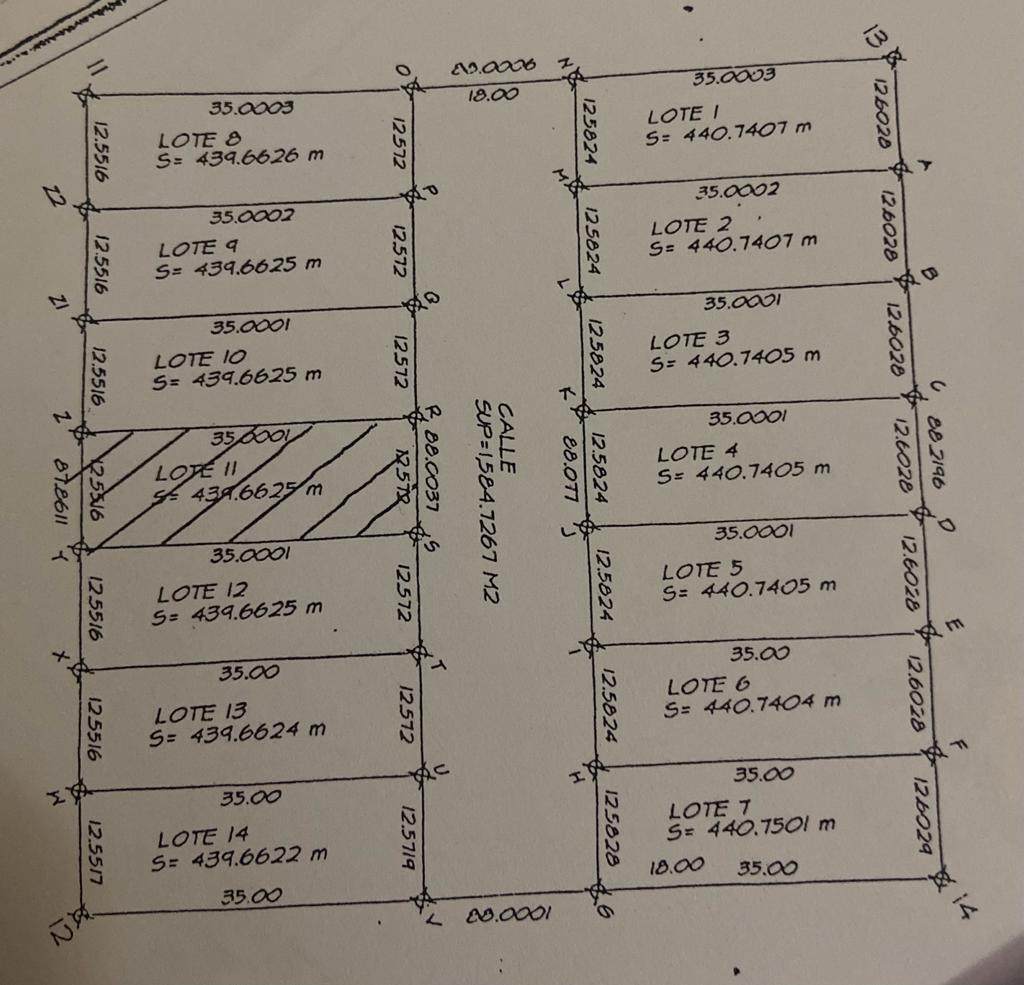 11
O
88.0006
N
13
35.0003
18.00
35.0003
12.5516
LOTE 8
S= 439.6626 m
12.572
12.5824
LOTE 1
S= 440.7407 m
12.6028
22
P
M
A
35.0002
35.0002
12.5516
LOTE 9
S= 439.6625 m
12.572
12.5824
LOTE 2
S= 440.7407 m
12.6028
21
Q
L
B
35.0001
35.0001
12.5516
LOTE 10
S= 439.6625 m
12.572
12.5824
LOTE 3
S= 440.7405 m
12.6028
Z
R
K
C
35.0001
35.0001
87.8611
12.5516
LOTE 11
S= 439.6625 m
12.572
88.0037
CALLE
SUP=1,584.7267 M2
88.077
12.5824
LOTE 4
S= 440.7405 m
12.6028
88.2196
Y
S
J
D
35.0001
35.0001
12.5516
LOTE 12
S= 439.6625 m
12.572
12.5824
LOTE 5
S= 440.7405 m
12.6028
X
T
I
E
35.00
35.00
12.5516
LOTE 13
S= 439.6624 m
12.572
12.5824
LOTE 6
S= 440.7404 m
12.6028
W
U
H
F
35.00
35.00
12.5517
LOTE 14
S= 439.6622 m
12.5719
12.5828
LOTE 7
S= 440.7501 m
12.6029
35.00
18.00
35.00
12
V
88.0001
G
14